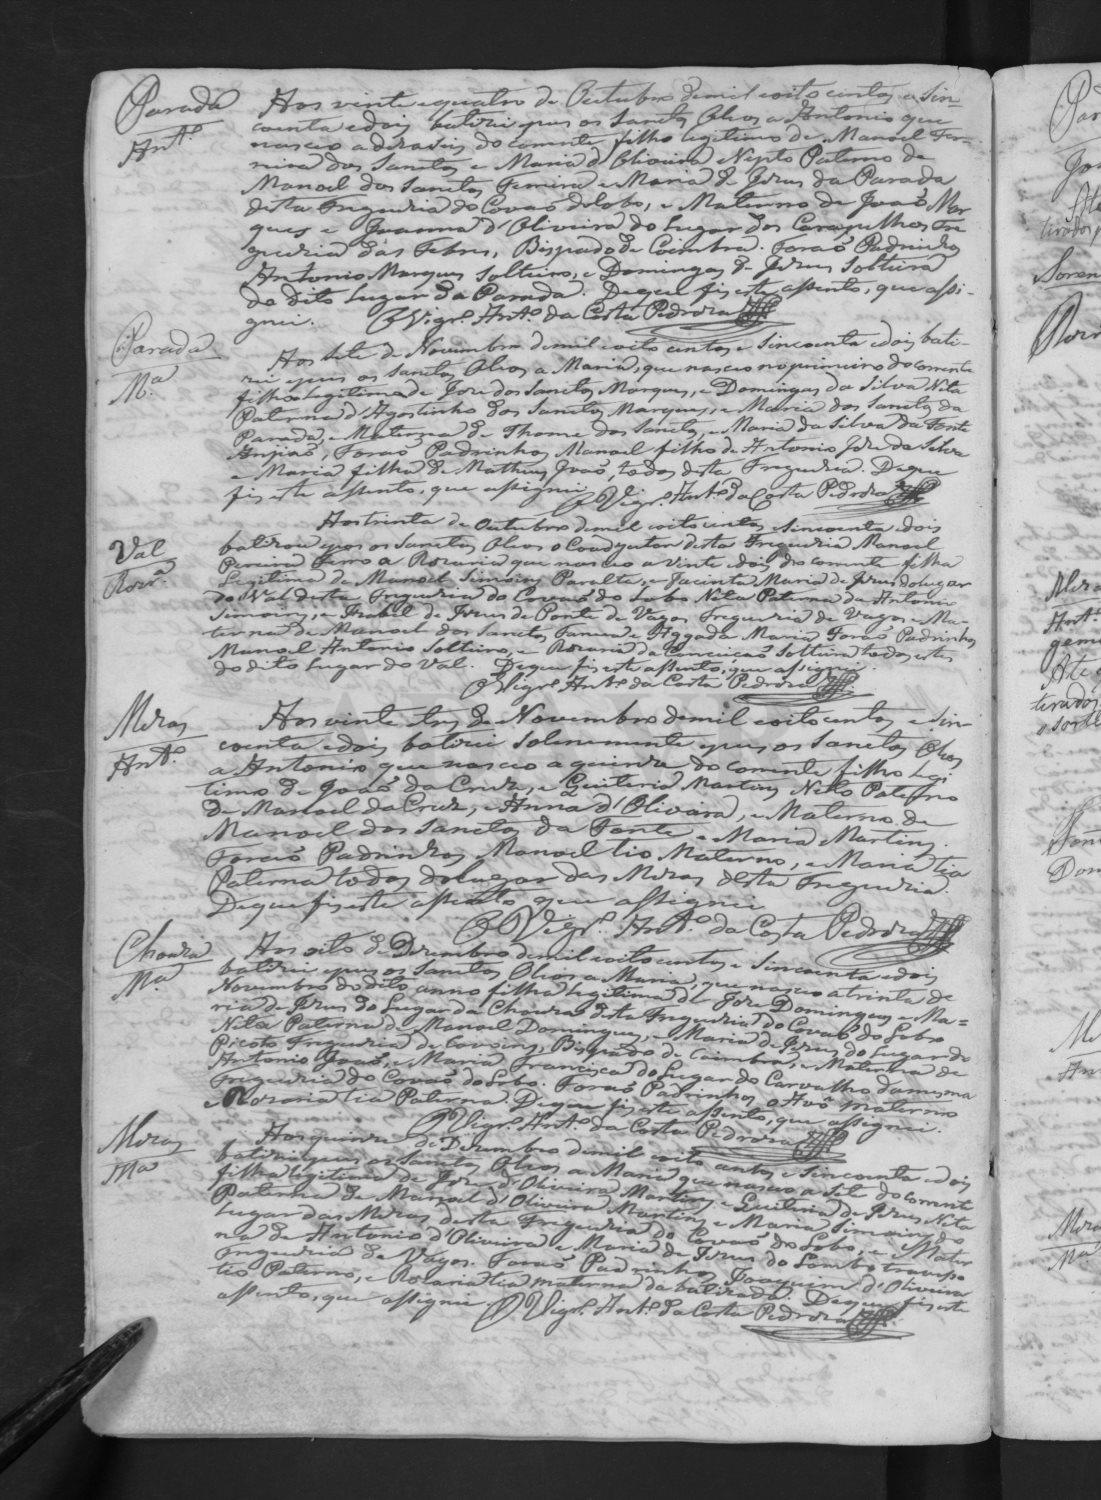 Parada
Ant.º
Aos vinte equatro de Outubro demil eoito centos e Sin=
coenta edois batizei epus os Sanctos Oleos a Antonio que
nasceo a dezaseis do corrente filho legitimo de Manoel Fer-
reira dos Sanctos e Maria d'Oliveira e Nepto Paterno de
Manoel dos Sanctos Ferreira e Maria de Jezus da Parada
desta Freguezia do Covaõ do Lobo, e Materno de Joaõ Mar
ques e Joanna d'Oliveira do Lugar dos Carapelhos Fre
guezia das Febres, Bispado de Coimbra. Foraõ Padrinhos
Antonio Marques Solteiro, e Domingas de Jezus Solteira
do dito Lugar da Parada. Deque fiz este assento, que assi-
gnei. O Vigr.º Ant.º da Costa Pedroza
Parada
M.ª
Aos sete de Novembro demil eoito centos e Sincoenta edois bati-
zei epus os Sanctos Oleos a Maria, que nasceo no primeiro do corrente
filha legitima de Joze dos Sanctos Marques, e Domingas da Silva Neta
Paterna d'Agostinho dos Sanctos Marques, e Maria dos Sanctos da
Parada, e Materna de Thome dos Sanctos, e Maria da Silva da Fonte
Anjiaõ, Foraõ Padrinhos Manoel filho de Antonio Joze da Silva
e Maria filha de Matheus Joaõ, todos desta Freguezia. Deque
fiz este assento, que assignei O Vigr.º Ant.º da Costa Pedroza
Val
Roza.
Aos trinta de Outubro demil eoito centos e Sincoenta edois
batizou epos os Sanctos Oleos o Coadjutor desta Freguezia Manoel
Pereira Ferro a Rozaria que nasceo a vinte edois do corrente filha
Legitima de Manoel Simoins Paralta, e Jacinta Maria de Jezus do Lugar
do Val desta Freguezia do Covaõ do Lobo Neta Paterna de Antonio
Simoins, e Izabel de Jezus de Ponte de Vagos Freguezia de Vagos e Ma-
terna de Manoel dos Sanctos e Aggada Maria Foraõ Padrinhos
Manoel Antonio Solteiro, e Rozaria da Conceicaõ Solteira todos estes
do dito Lugar do Val. Deque fiz este assento, que assignei.
O Vigr.º Ant.º da Costa Pedroza
Meras
Ant.º
Aos vinte tres de Novembro demil eoito centos e Sin-
coenta edois batizei Solenemente epus os Sanctos Oleos
a Antonio que nasceo a quinze do corrente filho legi
timo de Joaõ da Cruz, e Quiteria Martins Neto Paterno
de Manoel da Cruz, e Anna d'Oliveira, e Materno de
Manoel dos Sanctos da Fonte e Maria Martins.
Foraõ Padrinhos Manoel tio Materno, e Maria tia
Paterna todos do Lugar das Meras desta Freguezia.
Deque fiz este assento que assignei
O Vigr.º Ant.º da Costa Pedroza
Chouza
M.ª
Aos oito de Dezembro demil eoito centos e Sincoenta edois
batizei epus os Sanctos Oleos a Maria, que nasceo a trinta de
Novembro do dito anno filha legitima de Joze Domingues e Ma=
ria de Jezus do Lugar da Chouza desta Freguezia do Covaõ do Lobo
Neta Paterna de Manoel Domingues, e Maria de Jezus do Lugar do
Picoto Freguezia de Covoins, Bispado de Coimbra, e Materna de
Antonio Joaõ, e Maria Francisca do Lugar do Carvalho damesma
Freguezia do Covaõ do Lobo. Foraõ Padrinhos o Avô Materno
e Rozaria tia Paterna. Deque fiz este assento, que assignei.
O Vigr.º Ant.º da Costa Pedroza
Meras
M.ª
Aos quinze de Dezembro demil eoito centos e Sincoenta edois
batizei epus os Sanctos Oleos a Maria que nasceo a Sete do corrente
filha legitima de Joze d'Oliveira Martins e Quiteria de Jezus Neta
Paterna de Manoel d'Oliveira Martins e Maria Simoins do
Lugar das Meras desta Freguezia do Covaõ do Lobo, e Mater
na de Antonio d'Oliveira e Maria de Jezus do Lombo travesso
Freguezia de Vagos. Foraõ Padrinhos Joaquim d'Oliveira
tio Paterno, e Rozaria tia materna da batizada. Deque fiz este
assento, que assignei O Vigr.º Ant.º da Costa Pedroza